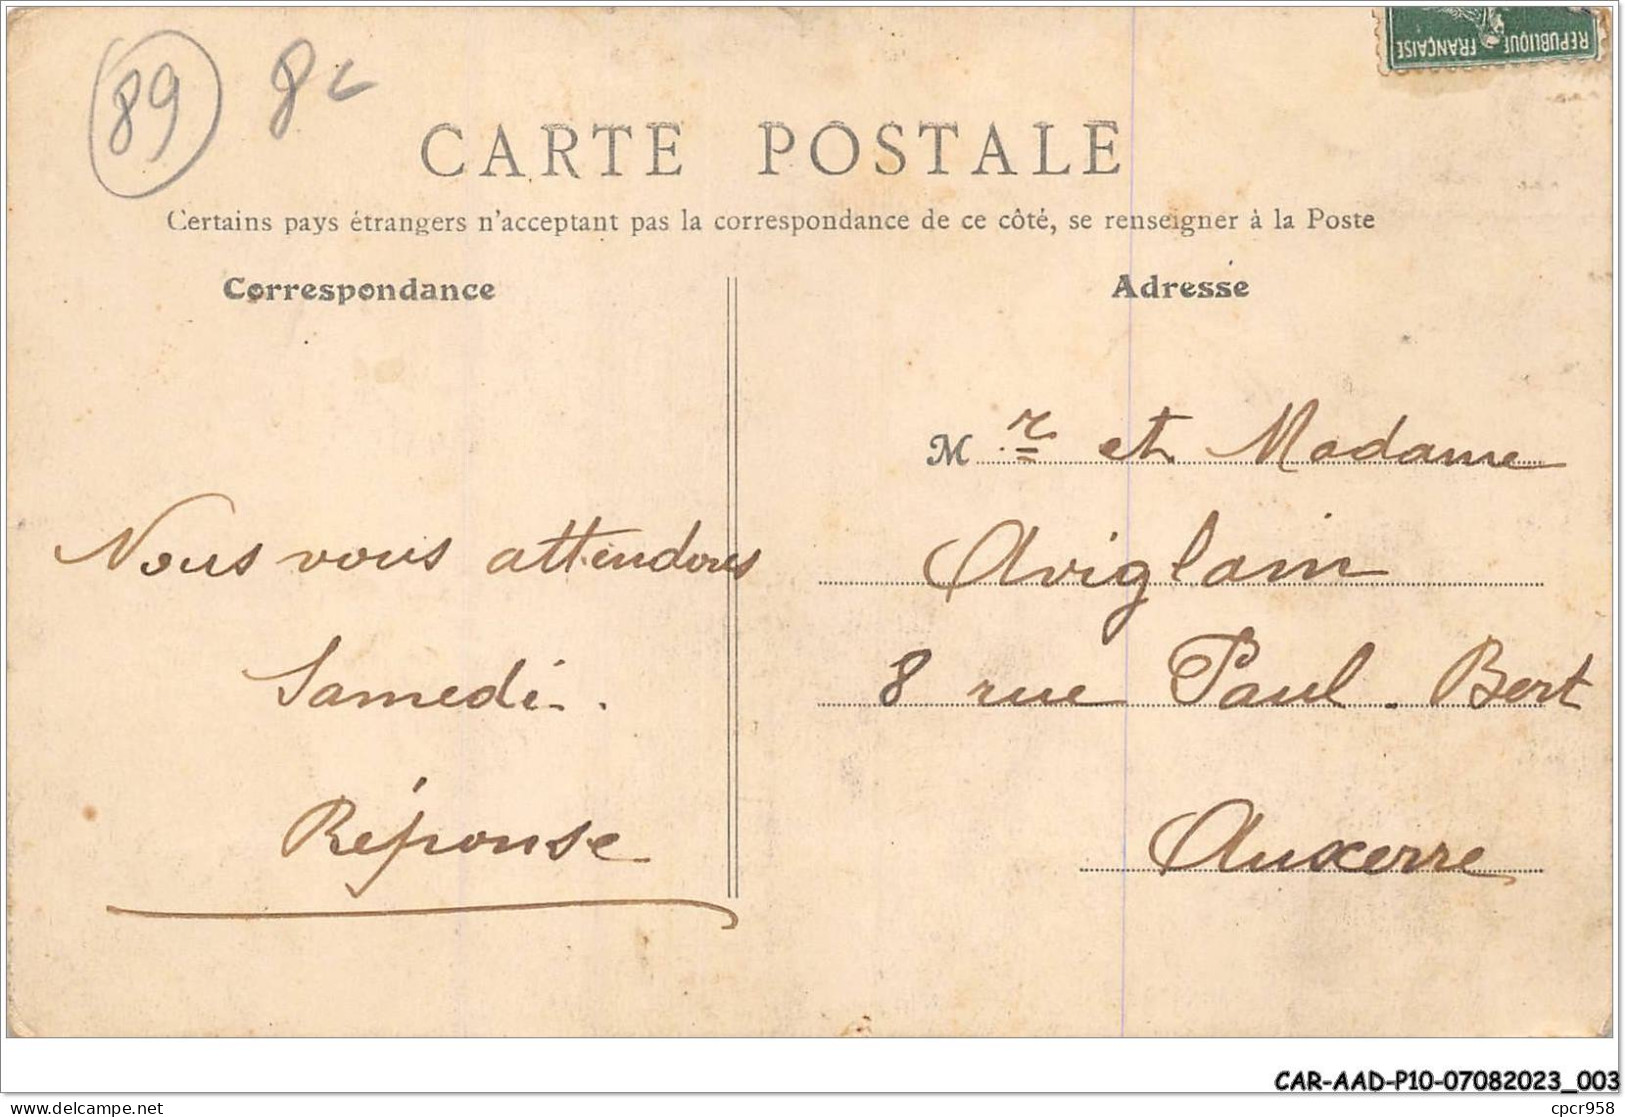 89 8c
RÉPUBLIQUE FRANÇAISE
CARTE POSTALE
Certains pays étrangers n'acceptant pas la correspondance de ce côté, se renseigner à la Poste
Correspondance
Adresse
Nous vous attendons
Samedi.
Réponse
Mr et Madame
Aviglain
8 rue Paul-Bert
Auxerre
CAR-AAD-P10-07082023_003
cpcr958